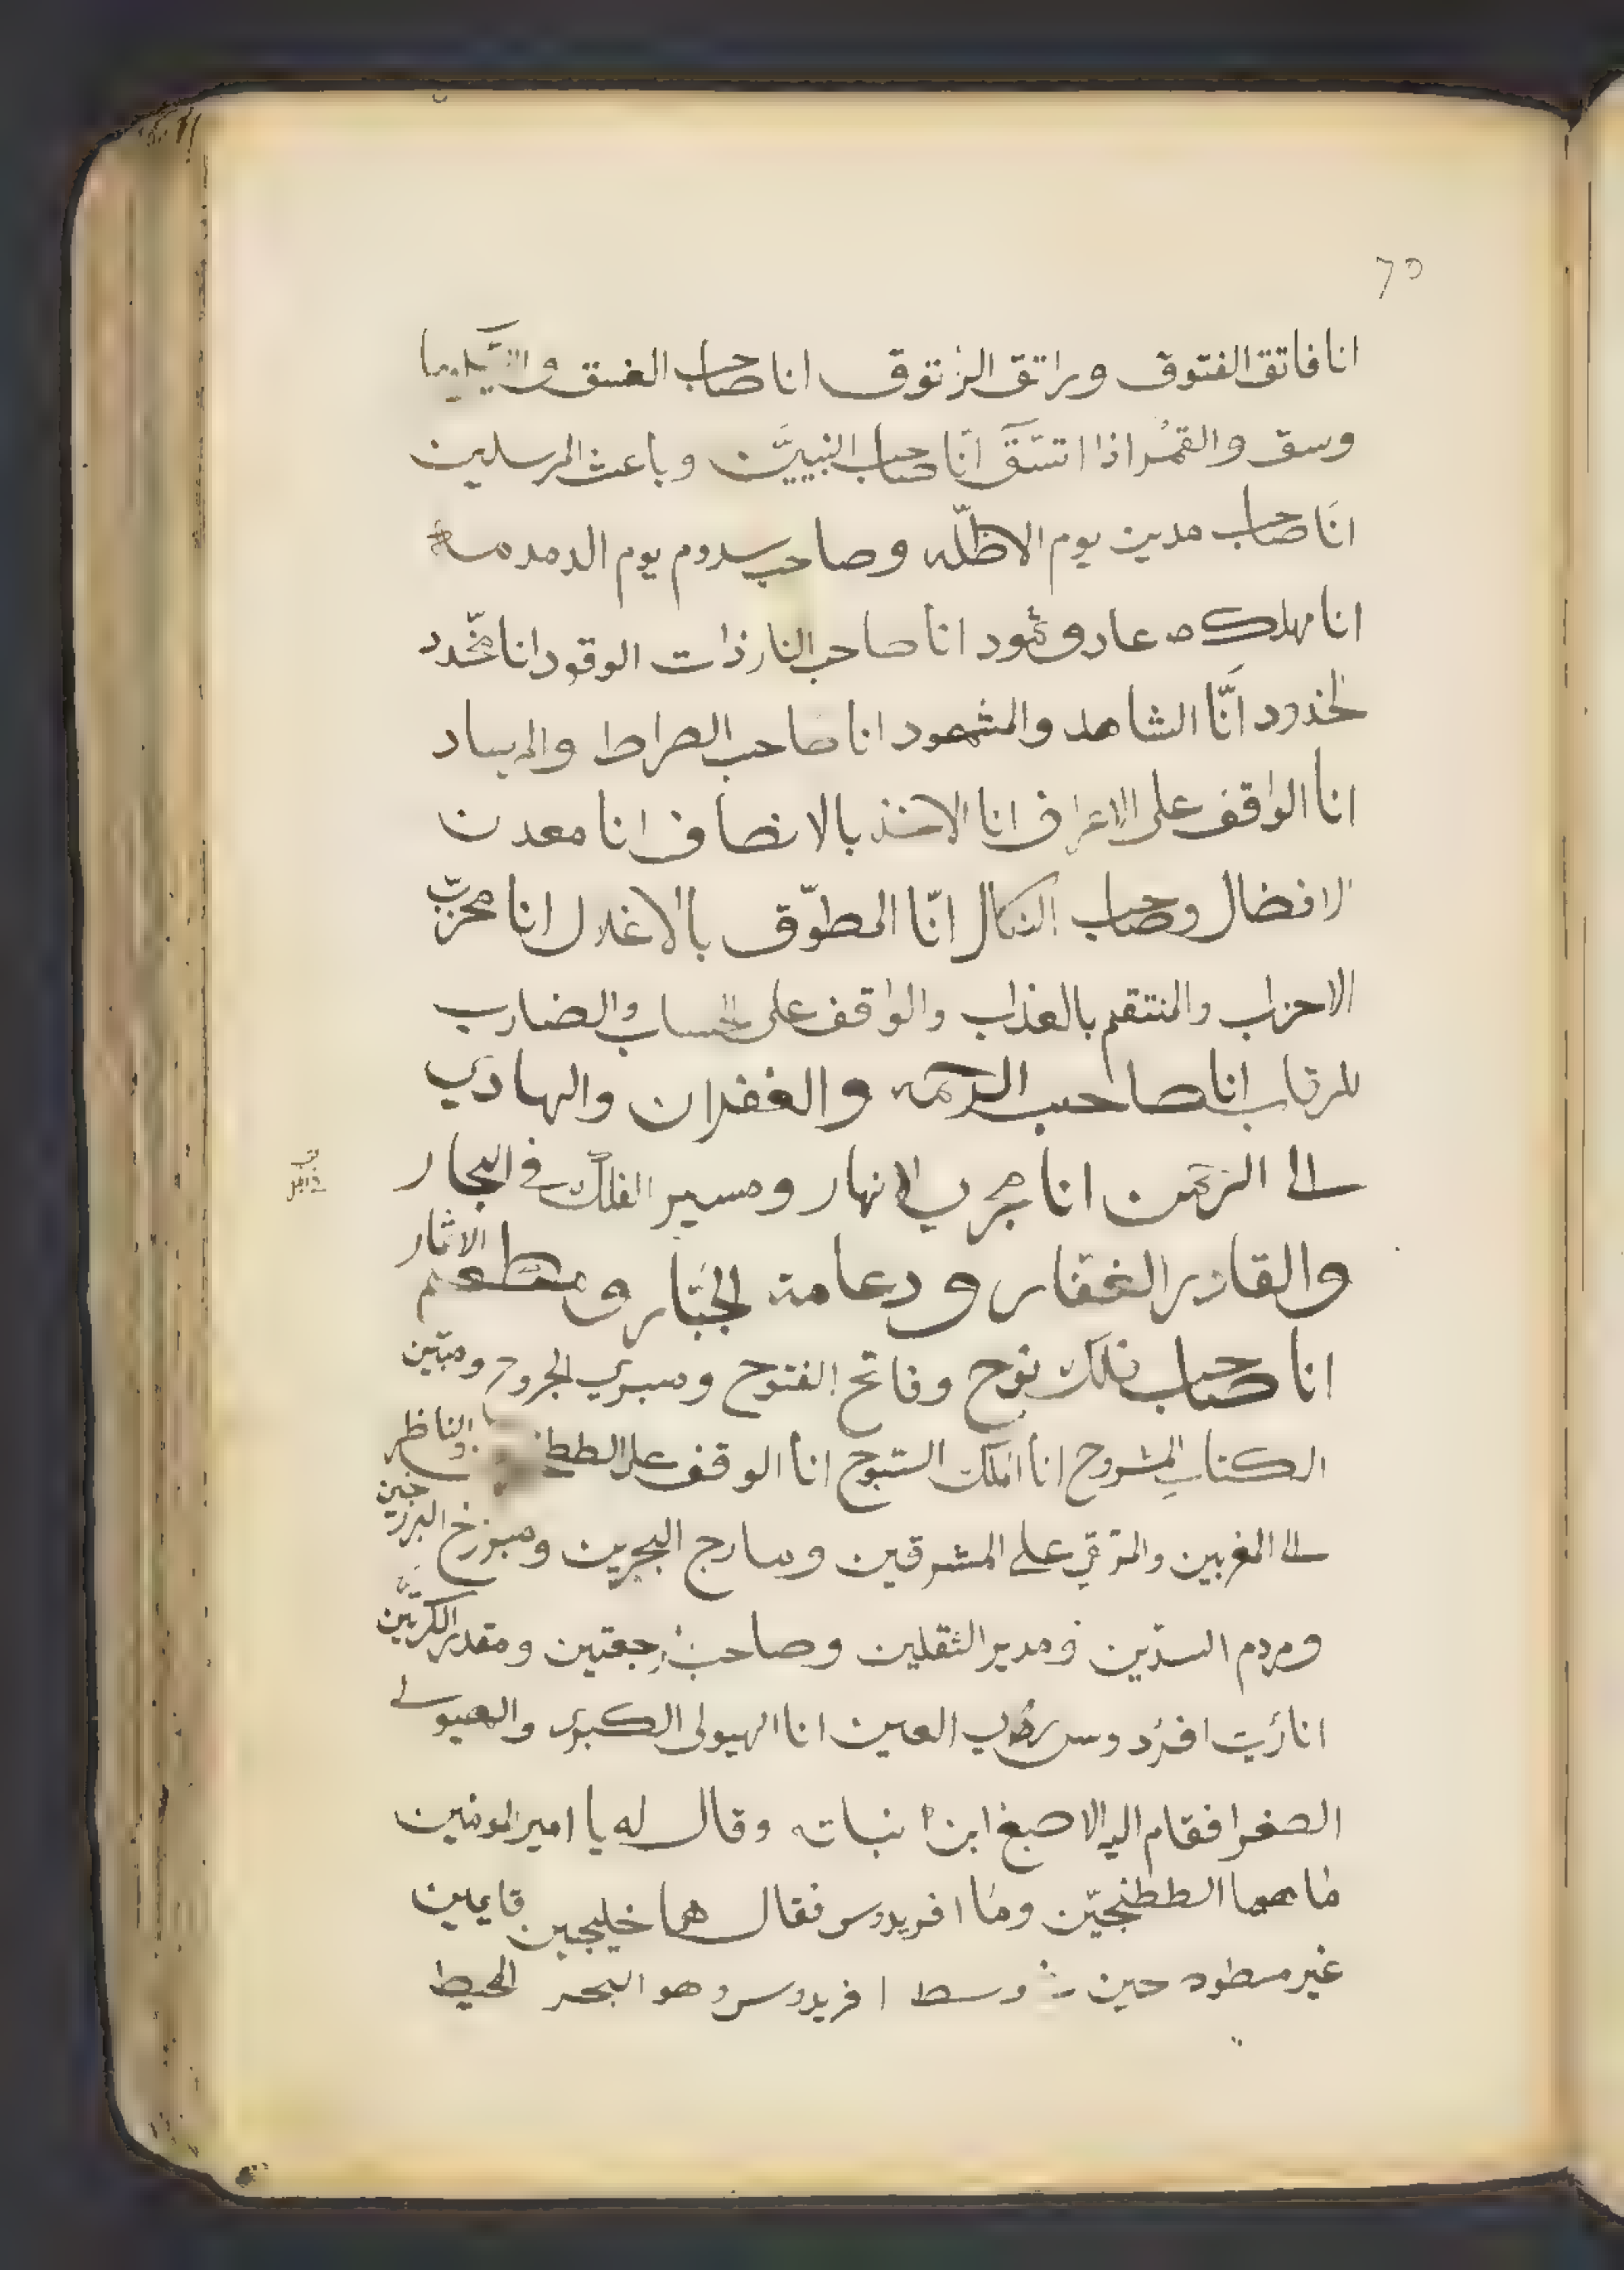 ٦٥
انا فاتق الفتوق وراتق الرتوق انا صاحب الغسق والليل وما
وسق والقمر اذا اتسَقَ انا صاحب النبيَّن وباعث المرسلين
انَا صاحب مدين يوم الاظلّه وصاحب سدوم يوم الدمدمة
انا مهلك عاد وثمود انا صاحب النار ذات الوقود انا مخّدد
الخدود اَنّا الشاهد والمشهود انا صاحب الصراط والميساد
انا الواقف على الاعراف انا الاخذ بالانصاف انا معدن
الافضال وصاحب النكال انّا المطوّق بالاغلال انا محزّب
الاحزاب والمنتقم بالعذاب والواقف على الحساب والضارب
للرقاب انا صاحب الرحمه والغفران والهادي
الى الرحمن انا مجري الانهار ومسير الفلك في البحار
والقادر الغفار ودعامة الجبّار ومطعم الاثمار
انا صاحب فلك نوح وفاتح الفتوح ومبري الجروح ومبيّن
الكتاب المشروح انا الملك السبّوح انا الوقف على والناظر
الى المغربين والمترقي على المشرقين ومارج البحرين ومبرزخ البرزخين
ومردم السدّين ومدير الثقلين وصاحب رجعتين ومقدر الكرّتين
انا رُيت افرُدوس العين انا الهيولى الكبرى والهيولى
الصغرا فقام اليه الاصبغ ابن نباته وقال له يا امير المومنين
ما هما الططنجيّن وما افريدوس فقال هما خليجين قايمين
غير حين وسط افريدوس وهو البحر المحيط